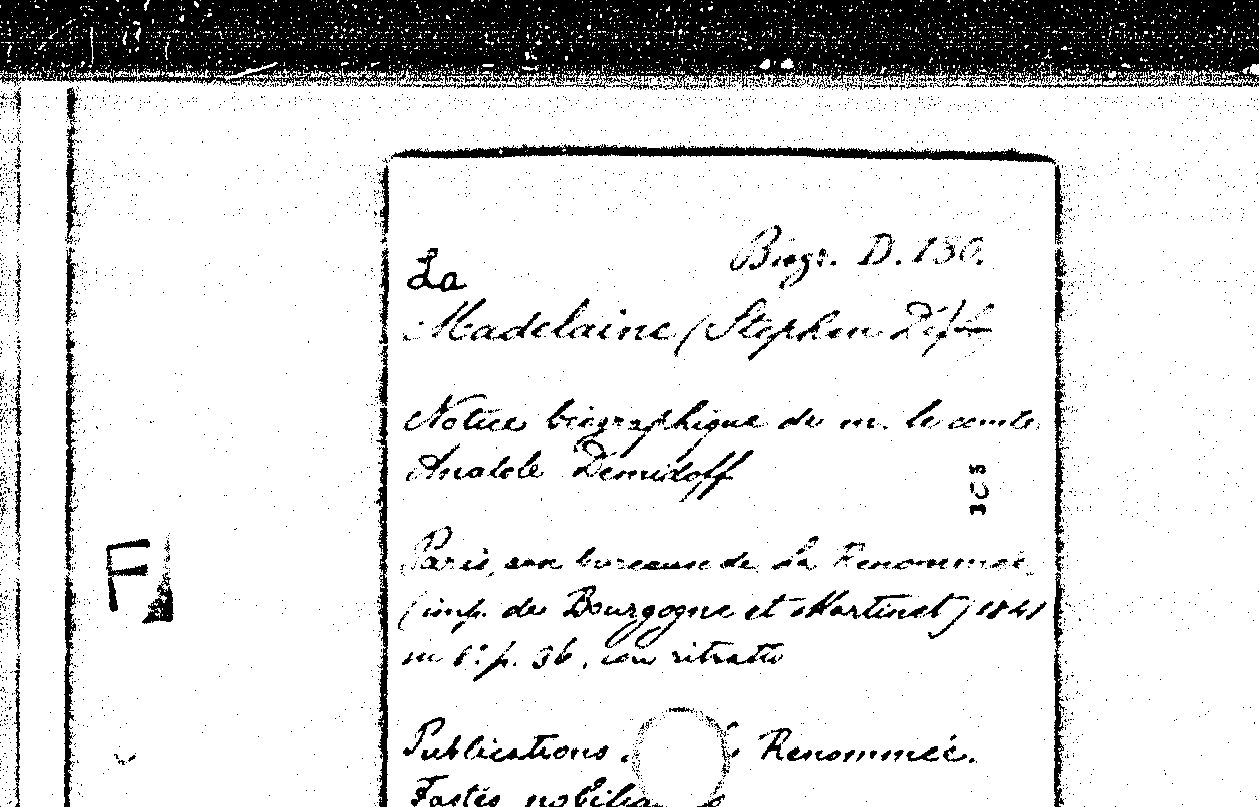 Biogr. D. 130.
La
Madelaine (Stephen De)
Notice biographique de m. le comte
Anatole Demidoff
3C3
F
Paris, aux bureaux de la Renommée,
(imp. de Bourgogne et Martinet) 1841
in 8° p. 36, con ritratto
Publications de la Renommée.
Fastes nobiliaires